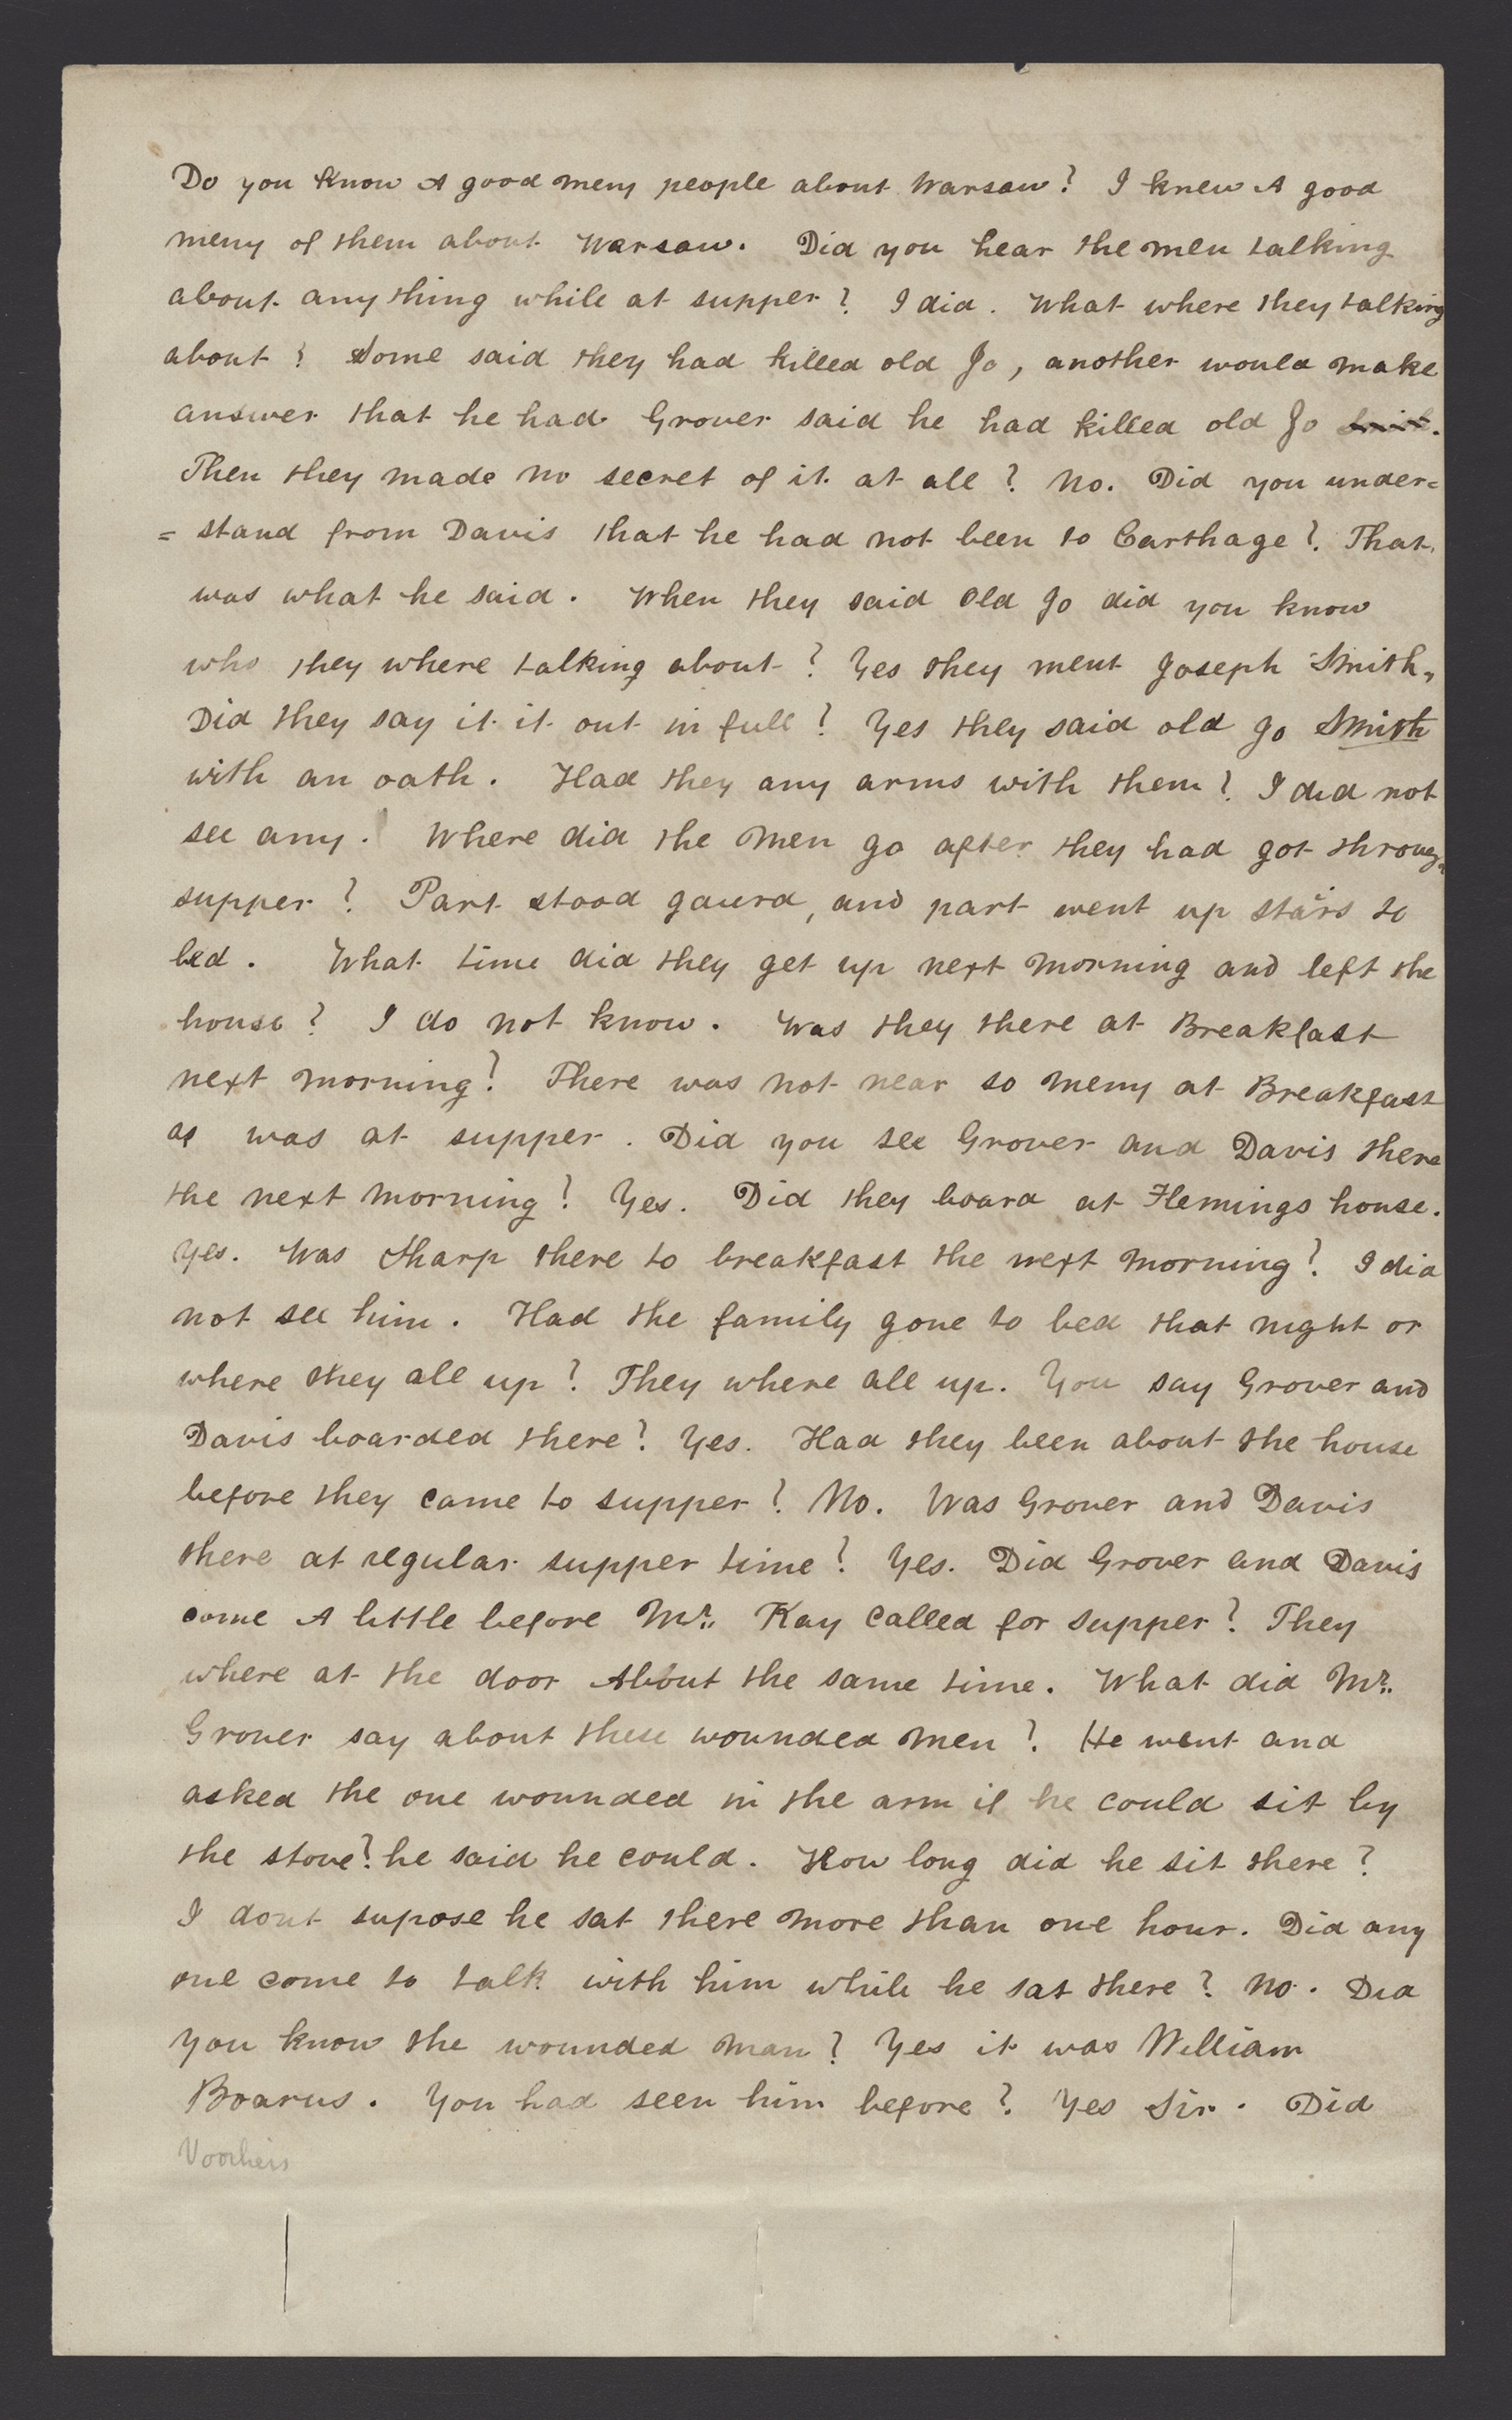 Do you know A good meny people about Warsaw? I knew A good
meny of them about Warsaw. Did you hear the men talking
about any thing while at supper? I did. What where they talking
about? Some said they had killed old Jo, another would make
answer that he had Grover said he had killed old Jo Smith.
Then they made no secret of it at all? No. Did you under=
= stand from Davis that he had not been to Carthage? That
was what he said. When they said old Jo did you know
who they where talking about? Yes they ment Joseph Smith,
Did they say it it out in full? Yes they said old Jo Smith
with an oath. Had they any arms with them? I did not
see any. Where did the men go after they had got throug
supper? Part stood gaurd, and part went up stairs to
bed. What time did they get up next morning and left the
house? I do not know. Was they there at Breakfast
next morning? There was not near so meny at Breakfast
as was at supper. Did you see Grover and Davis there
the next morning? Yes. Did they board at Flemings house.
Yes. Was Sharp there to breakfast the next morning? I did
not see him. Had the family gone to bed that night or
where they all up? They where all up. You say Grover and
Davis boarded there? Yes. Had they been about the house
before they came to supper? No. Was Grover and Davis
there at regular supper time? Yes. Did Grover and Davis
come A little before Mr. Kay called for supper? They
where at the door About the same time. What did Mr.
Grover say about these wounded men? He went and
asked the one wounded in the arm if he could sit by
the stove? he said he could. How long did he sit there?
I dont supose he sat there more than one hour. Did any
one come to talk with him while he sat there? No. Did
you know the wounded man? Yes it was William
Boarus. You had seen him before? Yes Sir. Did
Voorheis